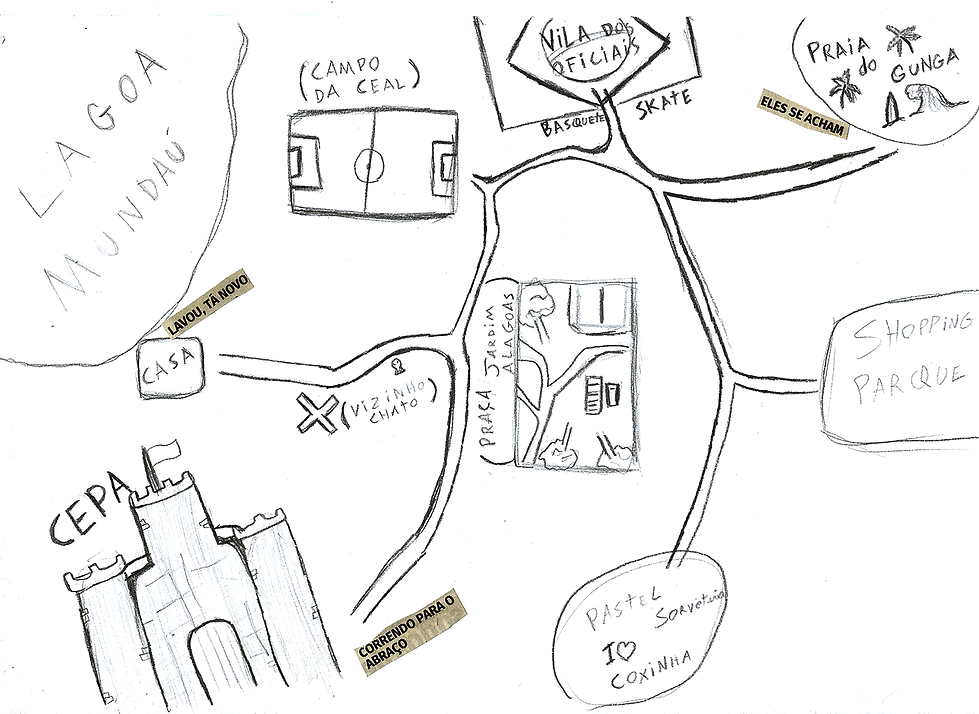 LAGOA
MUNDAÚ
(CAMPO
DA CEAL)
VILA DOS
OFICIAIS
BASQUETE
SKATE
PRAIA
do
GUNGA
ELES SE ACHAM
LAVOU, TÁ NOVO
CASA
(VIZINHO
CHATO)
PRAÇA JARDIM
ALAGOAS
SHOPPING
PARQUE
CEPA
CORRENDO PARA O
ABRAÇO
PASTEL
SORVETERIA
I♡
COXINHA